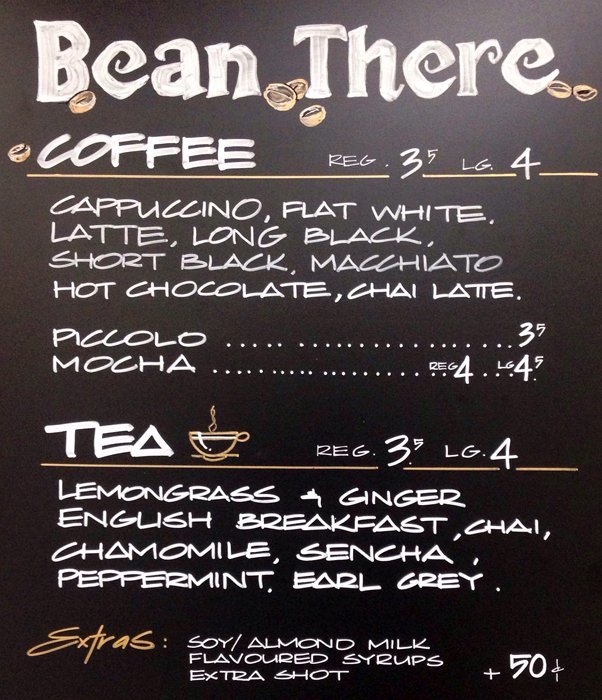 Bean There
COFFEE REG. 3⁵ LG. 4
CAPPUCCINO, FLAT WHITE,
LATTE, LONG BLACK,
SHORT BLACK, MACCHIATO
HOT CHOCOLATE, CHAI LATTE.
PICCOLO .................... 3⁵
MOCHA .................... REG 4 .. LG 4⁵
TEA REG. 3⁵ LG. 4
LEMONGRASS & GINGER
ENGLISH BREAKFAST, CHAI,
CHAMOMILE, SENCHA,
PEPPERMINT. EARL GREY.
Extras: SOY/ALMOND MILK
FLAVOURED SYRUPS
EXTRA SHOT + 50¢